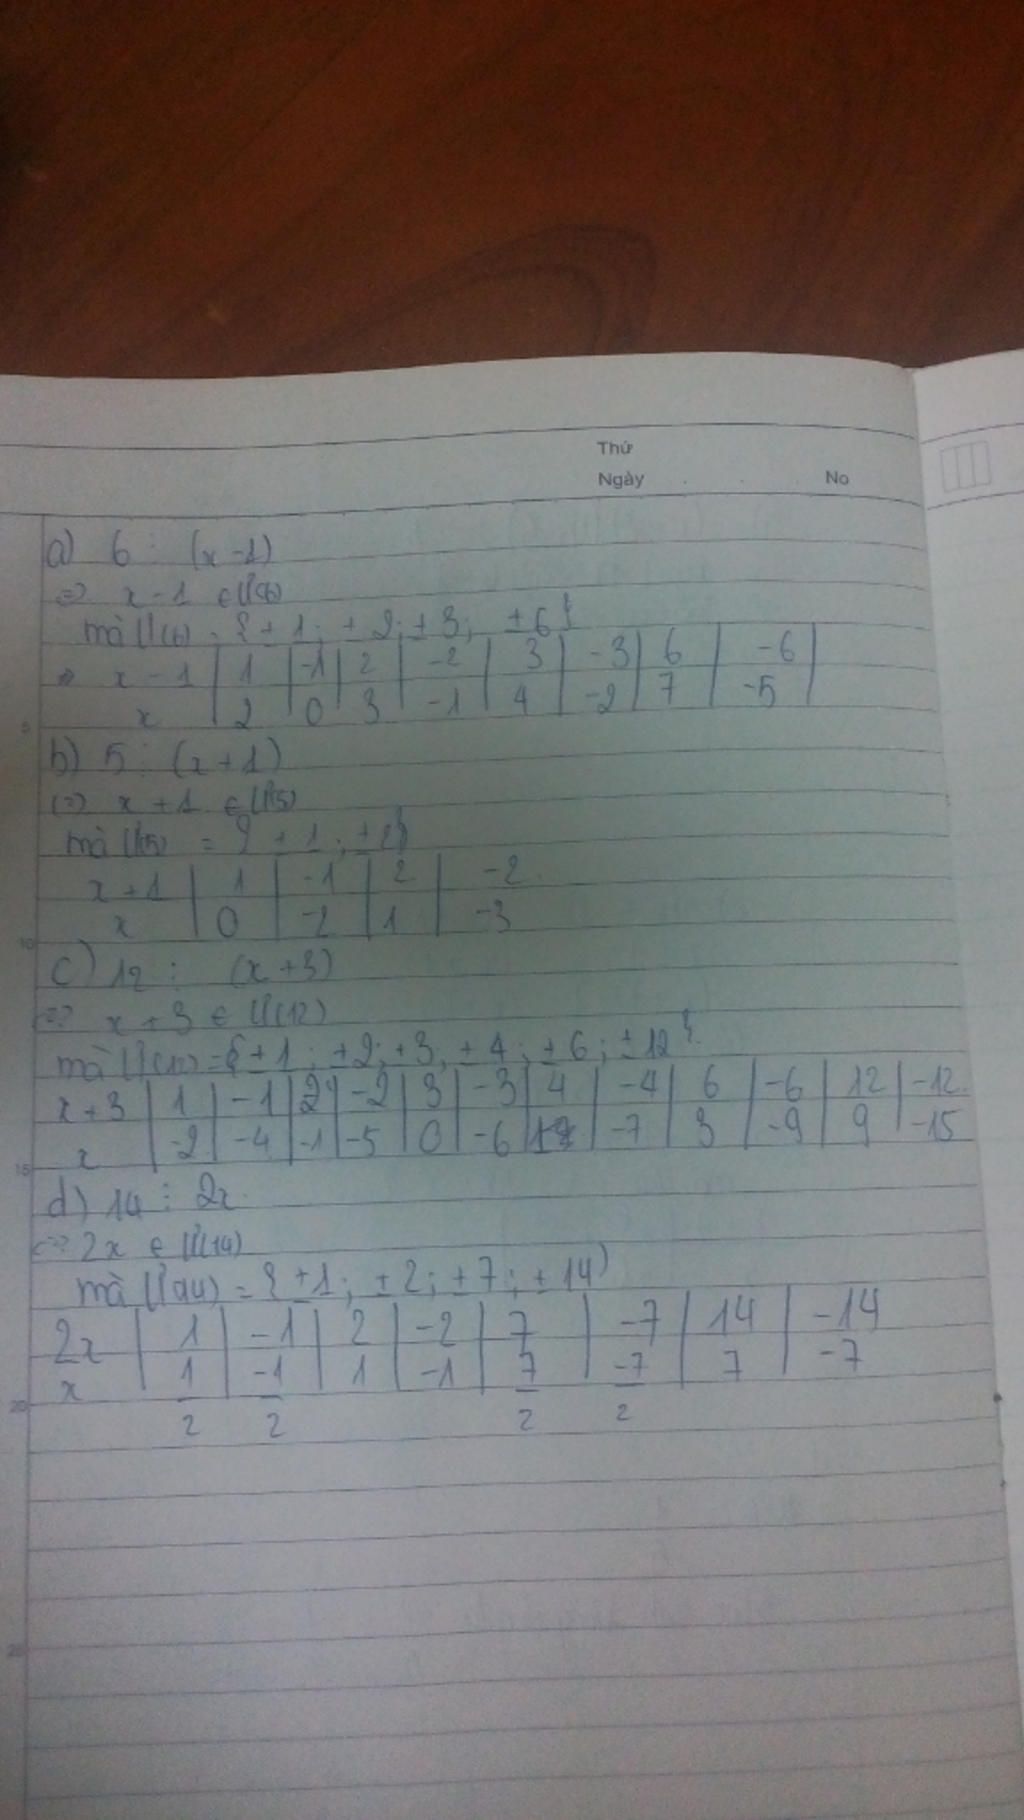 Thứ
Ngày No
a) 6 ⋮ (x-1)
=> x-1 ∈ Ư(6)
mà Ư(6) = {±1; ±2; ±3; ±6}
=> x-1 | 1 | -1 | 2 | -2 | 3 | -3 | 6 | -6 |
x | 2 | 0 | 3 | -1 | 4 | -2 | 7 | -5 |
5
b) 5 ⋮ (x+1)
<=> x+1 ∈ Ư(5)
mà Ư(5) = {±1; ±2}
x+1 | 1 | -1 | 2 | -2
x | 0 | -2 | 1 | -3
10
c) 12 ⋮ (x+3)
<=> x+3 ∈ Ư(12)
mà Ư(12) = {±1; ±2; ±3; ±4; ±6; ±12}
x+3 | 1 | -1 | 2 | -2 | 3 | -3 | 4 | -4 | 6 | -6 | 12 | -12
x | -2 | -4 | -1 | -5 | 0 | -6 | | -7 | 3 | -9 | 9 | -15
15
d) 14 ⋮ 2x
<=> 2x ∈ Ư(14)
mà Ư(14) = {±1; ±2; ±7; ±14)
2x | 1 | -1 | 2 | -2 | 7 | -7 | 14 | -14
x | 1/2 | -1/2 | 1 | -1 | 7/2 | -7/2 | 7 | -7
20